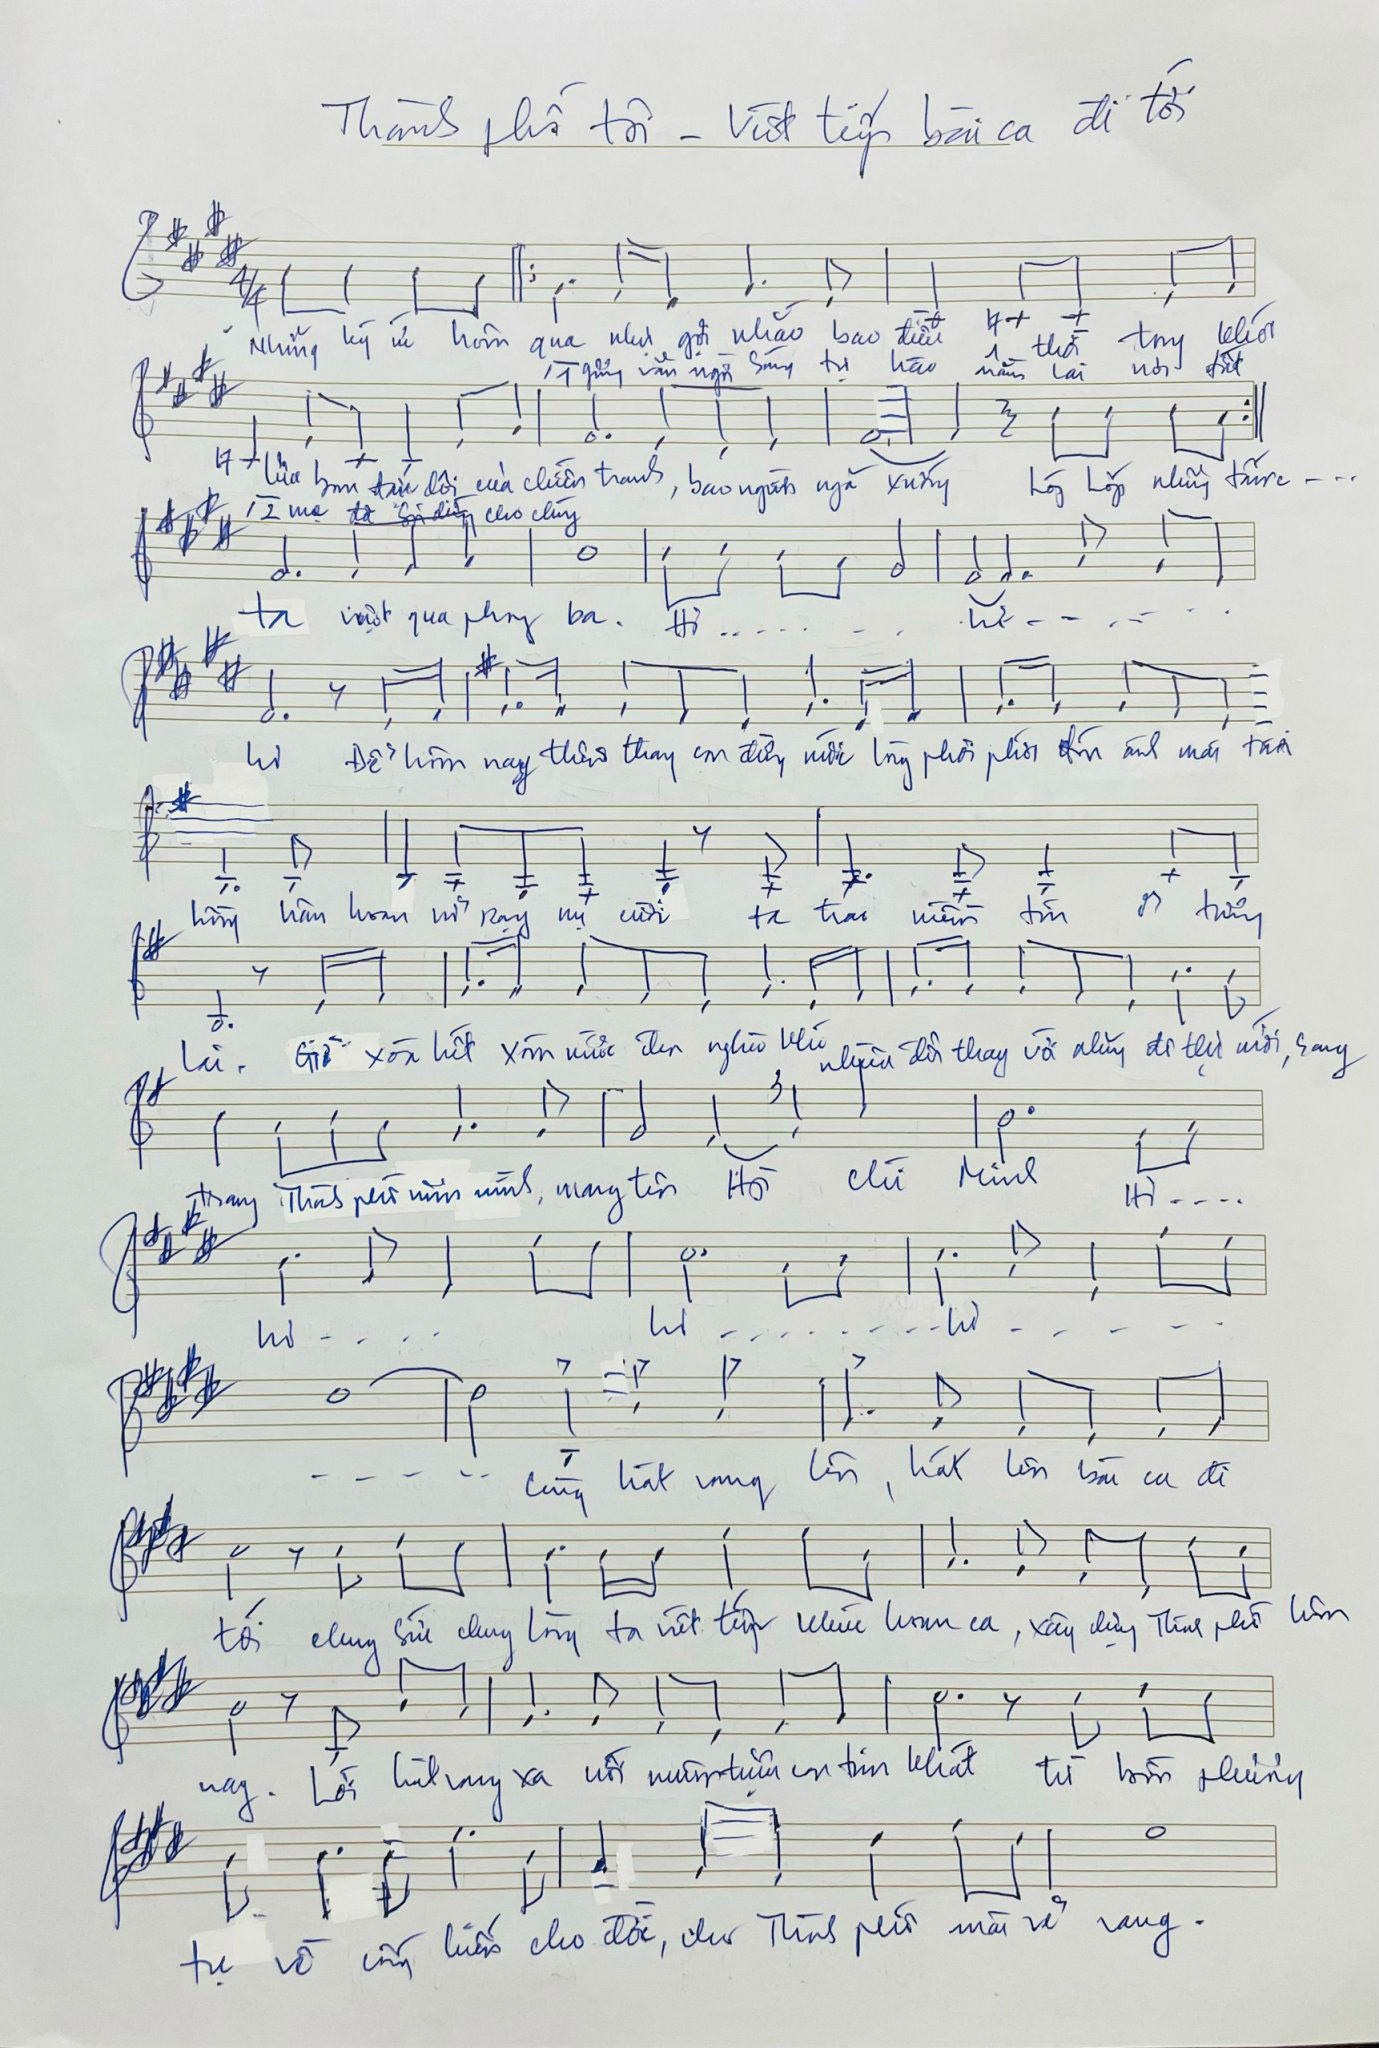 Thành phố tôi - Viết tiếp bài ca đi tới
4/4
Những ký ức hôm qua như gợi nhắc bao điều thời trong khói
sáng tự hào nằm lại nơi đất
lửa bom của chiến tranh, bao người ngã xuống Lớp lớp những
mẹ cho chúng
ta vượt qua phong ba. Hò .. hò
hò Để hôm nay thay con đất nước lòng phơi phới đón ánh mai
hồng hân hoan nở rạng nụ cười ta trao niềm tin ở tương
lai. Giờ xóa hết xóm nước đen nghèo khó đổi thay với những đô thị mới, sang
trang Thành phố mình, mang tên Hồ Chí Minh Hò ....
hò - . . . hò - - - - hò - - - -
- - - - - Cùng hát vang lên, hát lên bài ca đi
tới chung sức chung lòng ta viết tiếp khúc hoan ca, xây dựng Thành phố hôm
nay. Lời hát vang xa với muôn triệu con tim khát từ bốn phương
tụ về cống hiến cho đời, cho Thành phố mãi vẻ vang.